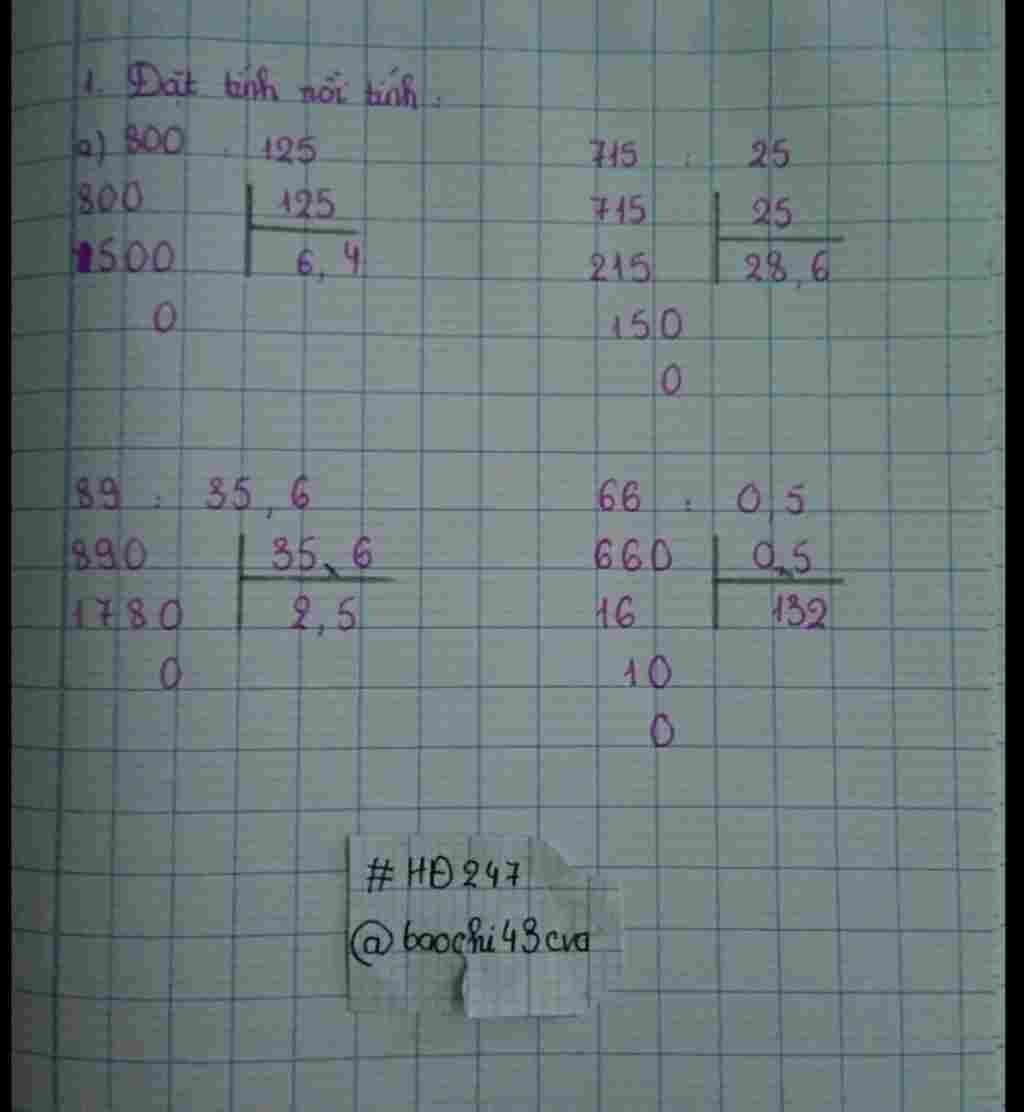 1. Đặt tính rồi tính.
a) 800 : 125
800 125
1500 6,4
0
715 : 25
715 25
215 28,6
150
0
89 : 35,6
890 35,6
1780 2,5
0
66 : 0,5
660 0,5
16 132
10
0
#HĐ247
@baochi43cva